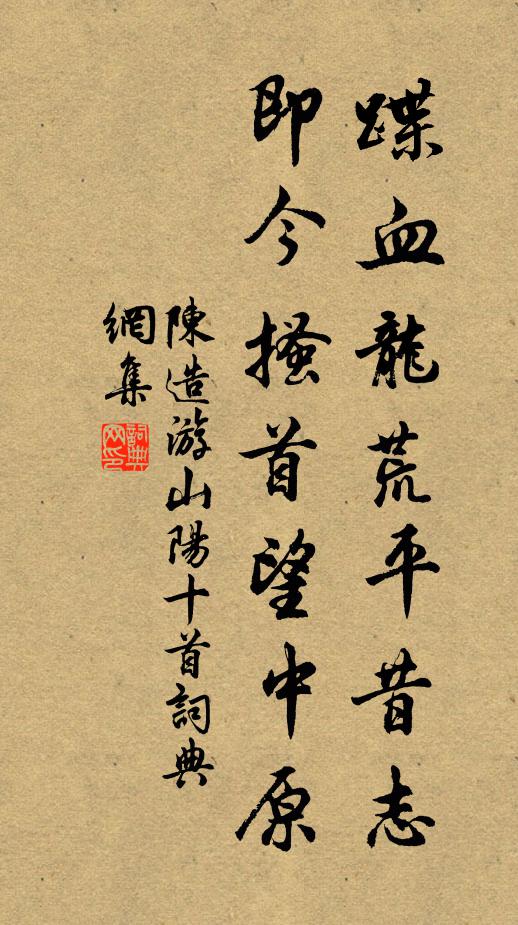 蹀血龍荒平昔志
即今搔首望中原
陳造游山陽十首詞典
網集
詞典
网印